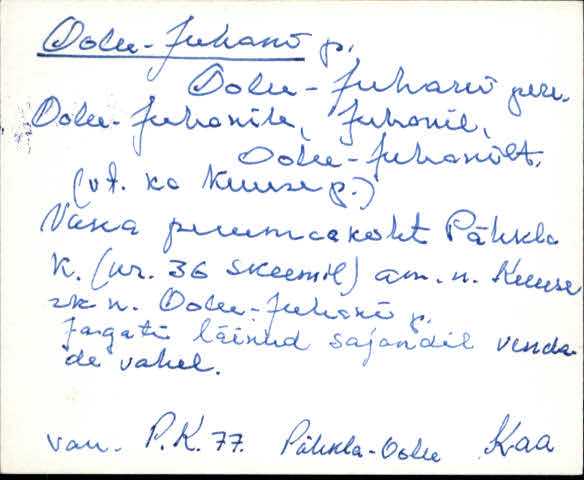 Oolu-Juhani p.
Oolu-Juhani pere.
Oolu-Juhanile, Juhanil,
Oolu-Juhanilt.
(vt. ka Kuuse p.)
Vana puumaakoht Pähkla
k. (nr. 36 skeemil) am. n. Kuuse
rk n. Oolu-Juhani p.
Jagati läinud sajandil venda
de vahel.
van. P.K. 77. Pähkla-Oolu Kaa